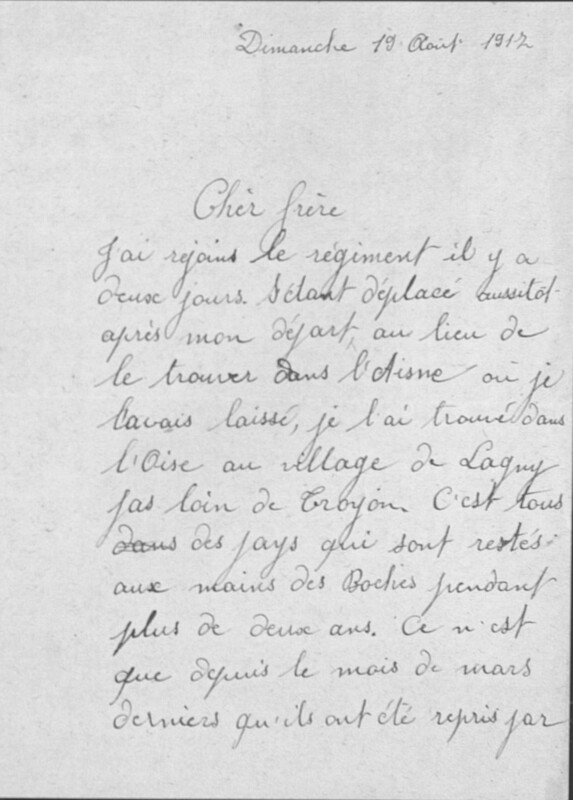 Dimanche 19 Août 1917
Chèr frère
J'ai rejoins le régiment il y a
deux jours. S'étant déplacé aussitôt
après mon départ, au lieu de
le trouver dans l'Aisne où je
l'avais laissé, je l'ai trouvé dans
l'Oise au village de Lagny
pas loin de Croyon. C'est tous
dans des pays qui sont restés
aux mains des Boches pendant
plus de deux ans. Ce n'est
que depuis le mois de mars
derniers qu'ils ont été repris par